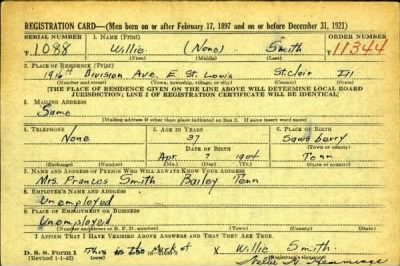 REGISTRATION CARD—(Men born on or after February 17, 1897 and on or before December 31, 1921)
SERIAL NUMBER 1. NAME (Print) ORDER NUMBER
T 1088 Willie (None) Smith 11344
(First) (Middle) (Last)
2. PLACE OF RESIDENCE (Print)
1916 Division Ave. E. St. Louis St. clair Ill
(Number and street) (Town, township, village, or city) (County) (State)
[THE PLACE OF RESIDENCE GIVEN ON THE LINE ABOVE WILL DETERMINE LOCAL BOARD
JURISDICTION; LINE 2 OF REGISTRATION CERTIFICATE WILL BE IDENTICAL]
3. MAILING ADDRESS
Same
[Mailing address if other than place indicated on line 2. If same insert word same]
4. TELEPHONE 5. AGE IN YEARS 6. PLACE OF BIRTH
None 37
DATE OF BIRTH (Town or county)
Apr. 7 1904 Tenn
(Exchange) (Number) (Mo.) (Day) (Yr.) (State or country)
7. NAME AND ADDRESS OF PERSON WHO WILL ALWAYS KNOW YOUR ADDRESS
Mrs. Frances Smith Bailey Tenn
8. EMPLOYER'S NAME AND ADDRESS
Unemployed
9. PLACE OF EMPLOYMENT OR BUSINESS
Unemployed
(Number and street or R. F. D. number) (Town) (County) (State)
I AFFIRM THAT I HAVE VERIFIED ABOVE ANSWERS AND THAT THEY ARE TRUE.
D. S. S. Form 1 Mark of x Willie Smith
(Revised 1-1-42)